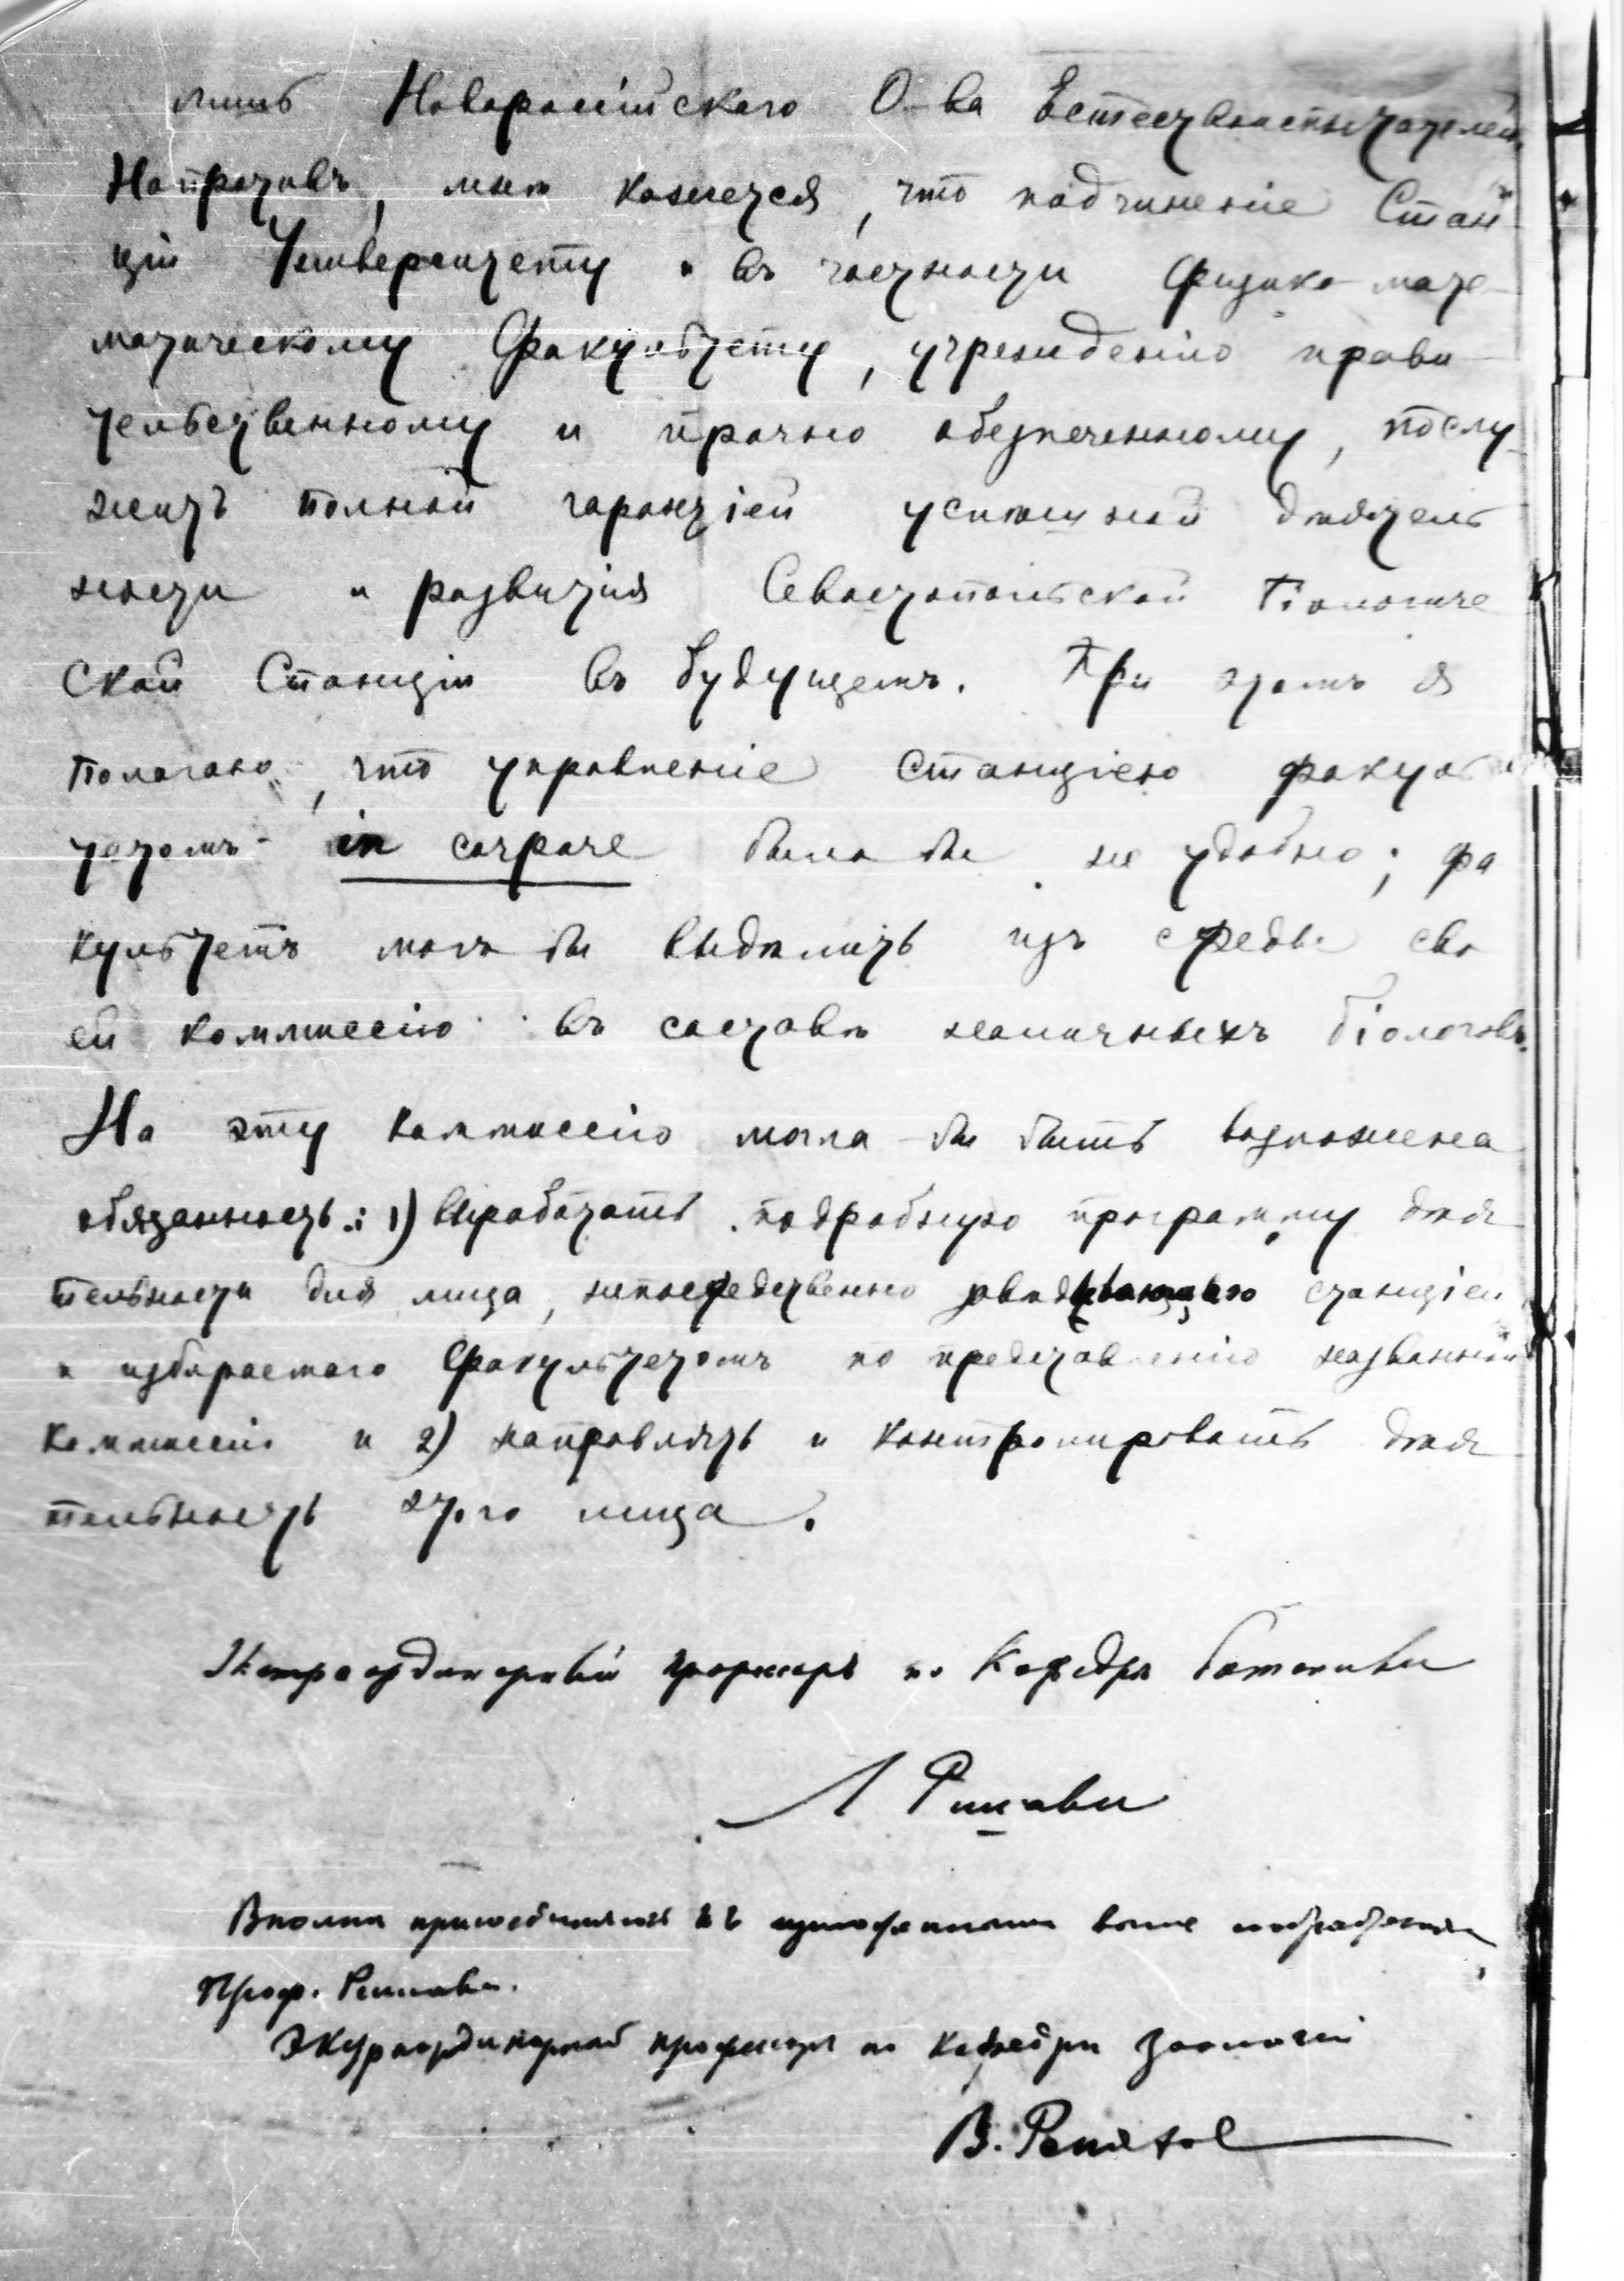 лишь Новороссійскаго О-ва Естествоиспытателей.
Напротивъ, мнѣ кажется, что подчиненіе Стан-
ціи Университету и въ частности физико-мате-
матическому Факультету, учрежденію прави-
тельственному и прочно обезпеченному, послу-
житъ полной гарантіей успѣшной дѣятель
ности и развитія Севастопольской Біологиче
ской Станціи въ будущемъ. При этомъ я
полагаю, что управленіе станціею факуль
тетомъ in corpore было бы не удобно; фа
культетъ могъ бы выдѣлить изъ среды сво
ей коммиссію въ составѣ наличныхъ біологовъ.
На эту коммиссію могла бы быть возложена
обязанность: 1) выработать подробную программу дѣя
тельности для лица, непосредственно завѣдывающаго станціей
и избираемаго Факультетомъ по представленію названной
коммиссіи и 2) направлять и контролировать дѣя
тельность этого лица.
Экстраординарный профессоръ по Кафедрѣ ботаники
Л Ришави
Вполнѣ присоединяюсь къ изложеннымъ выше соображеніямъ
Проф. Ришави.
Экстраординарный профессоръ по Кафедрѣ Зоологіи
В. Репяхов